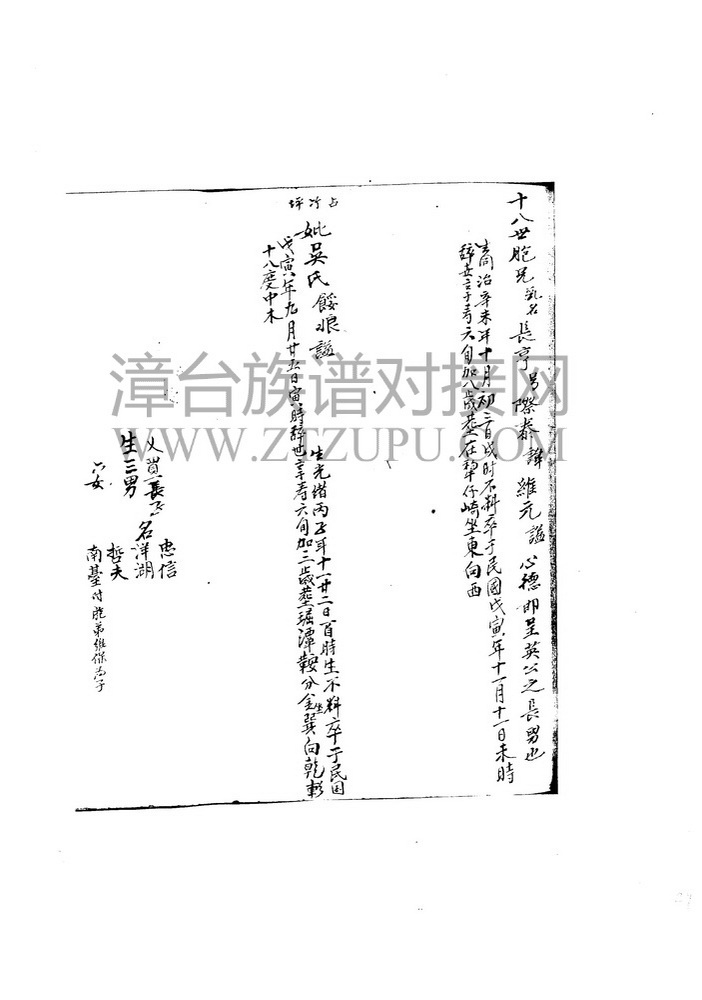 十八世胞兄乳名長亨号際泰諱維元謚心德即呈英公之長男也
生同治辛未年十月初二日戌时不料卒于民國戊寅年十一月十一日未時
辞世享寿六旬加八歲葬在犁仔崎坐東向西
占竹坪
妣吳氏餒娘謚
生光緒丙子年十一廿二日酉時生不料卒于民国
戊寅年九月廿五日寅時辞世享寿六旬加三歲葬堀潭鞍分金坐巽向乾彰
十八度中木
又買長子名忠信
生三男 洋湖
哲夫
南臺付胞弟維保为子
六女
漳台族谱对接网
WWW.ZTZUPU.COM
27